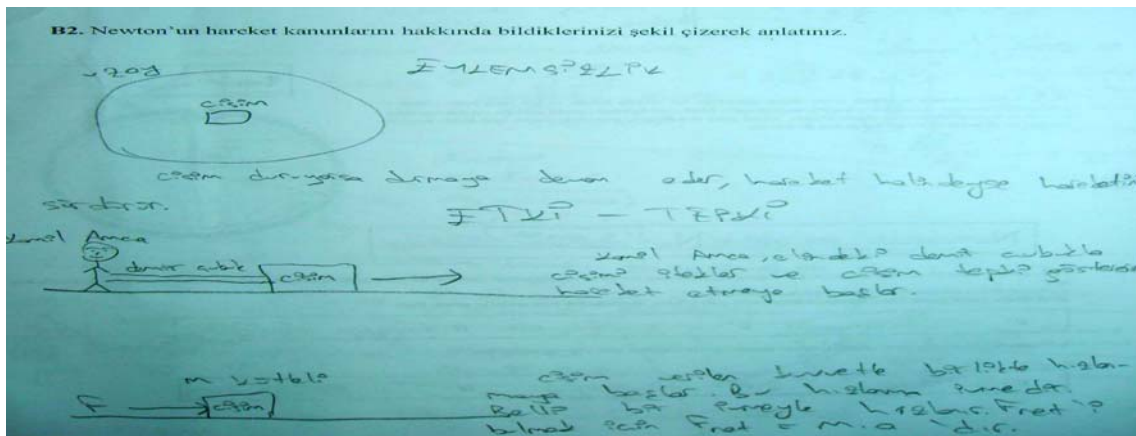 B2. Newton'un hareket kanunlarını hakkında bildiklerinizi şekil çizerek anlatınız.
uzay
EYLEMSİZLİK
cisim
cisim duruyorsa durmaya devam eder, hareket halindeyse hareketin
sürdürür.
ETKİ - TEPKİ
Kamil Amca
demir çubuk
cisim
Kamil Amca, elindeki demir çubukla
cisimi itekler ve cisim tepki göstererek
hareket etmeye başlar.
m kütleli
F
cisim
cisim verilen kuvvetle birlikte hızlan-
maya başlar. Bu hızlanma ivmedir.
Belli bir ivmeyle hızlanır. Fnet'i
bulmak için Fnet = m.a 'dır.